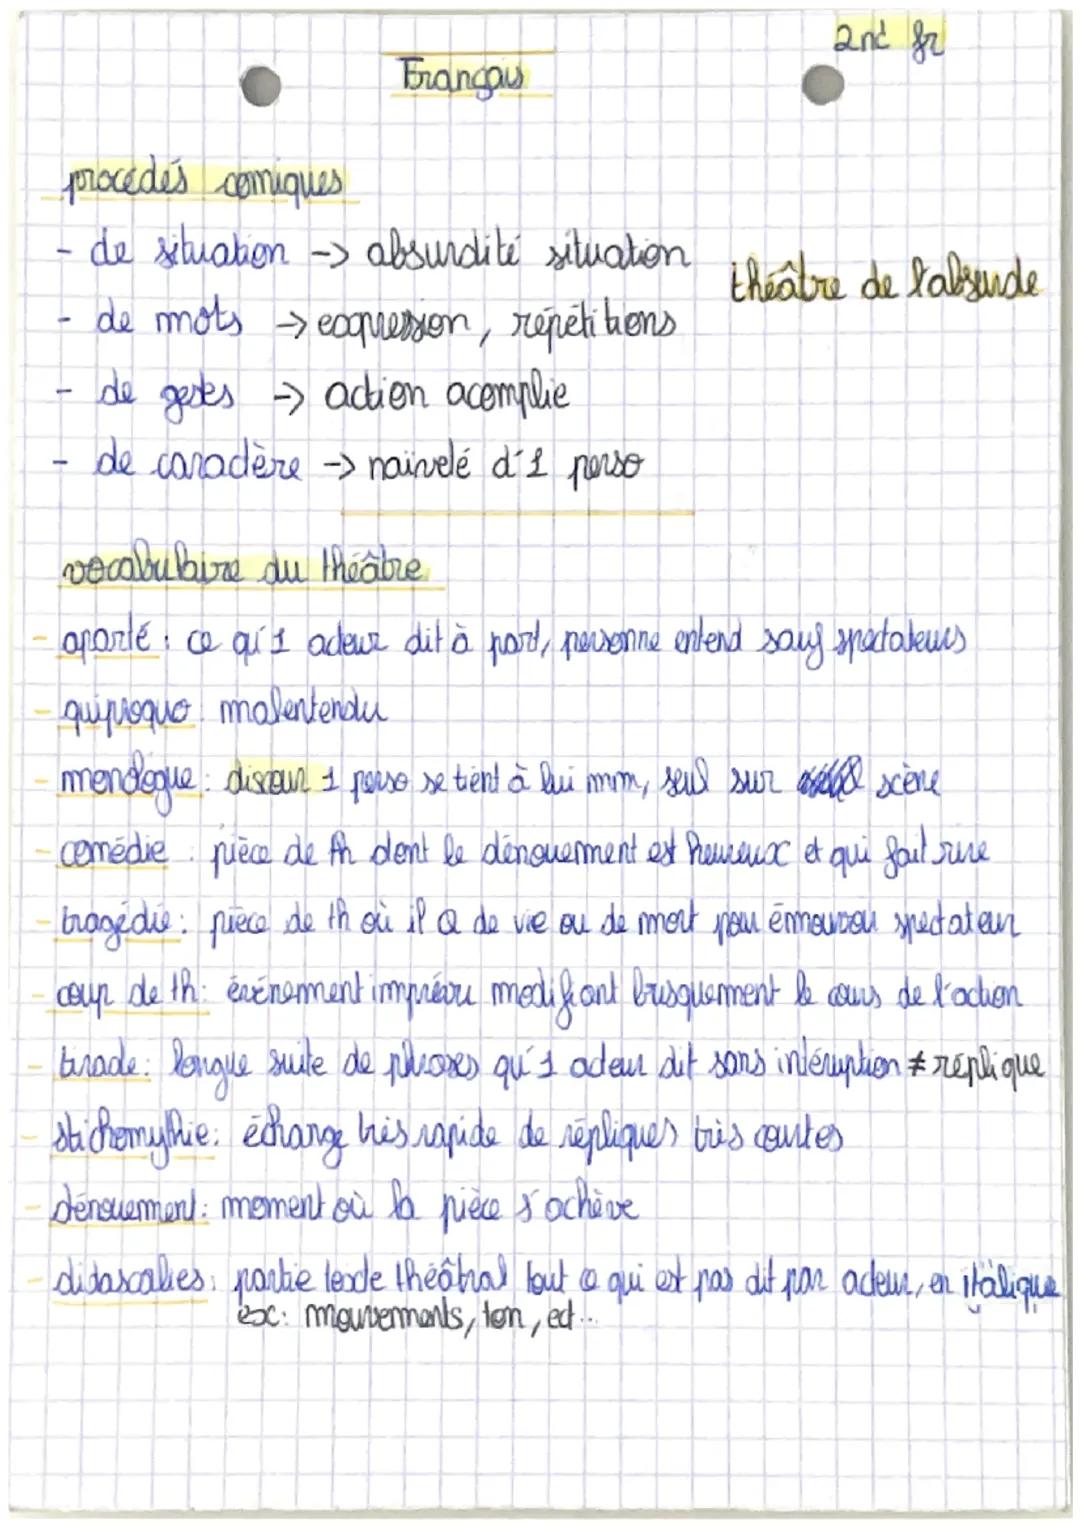 2nd fr
Français
procédés comiques
- de situation -> absurdité situation
théâtre de l'absurde
- de mots -> expression, répétitions
- de gestes -> action acomplie
- de caractère -> naïveté d'1 perso
vocabulaire du théâtre
- aparté : ce qu'1 acteur dit à part, personne entend sauf spectateurs
- quiproquo : malentendu
- monologue : discour 1 perso se tient à lui mm, seul sur scène
- comédie : pièce de th dont le dénouement est heureux et qui fait rire
- tragédie : pièce de th où il Q de vie ou de mort pour émouvoir spectateur
- coup de th : événement imprévu modifiant brusquement le cours de l'action
- tirade : longue suite de phrases qu'1 acteur dit sans intéruption ≠ réplique
- stichomythie : échange très rapide de répliques très courtes
- dénouement : moment où la pièce s'achève
- didascalies : partie texte théâtral tout ce qui est pas dit par acteur, en italique
ex : mouvements, ton, ect...